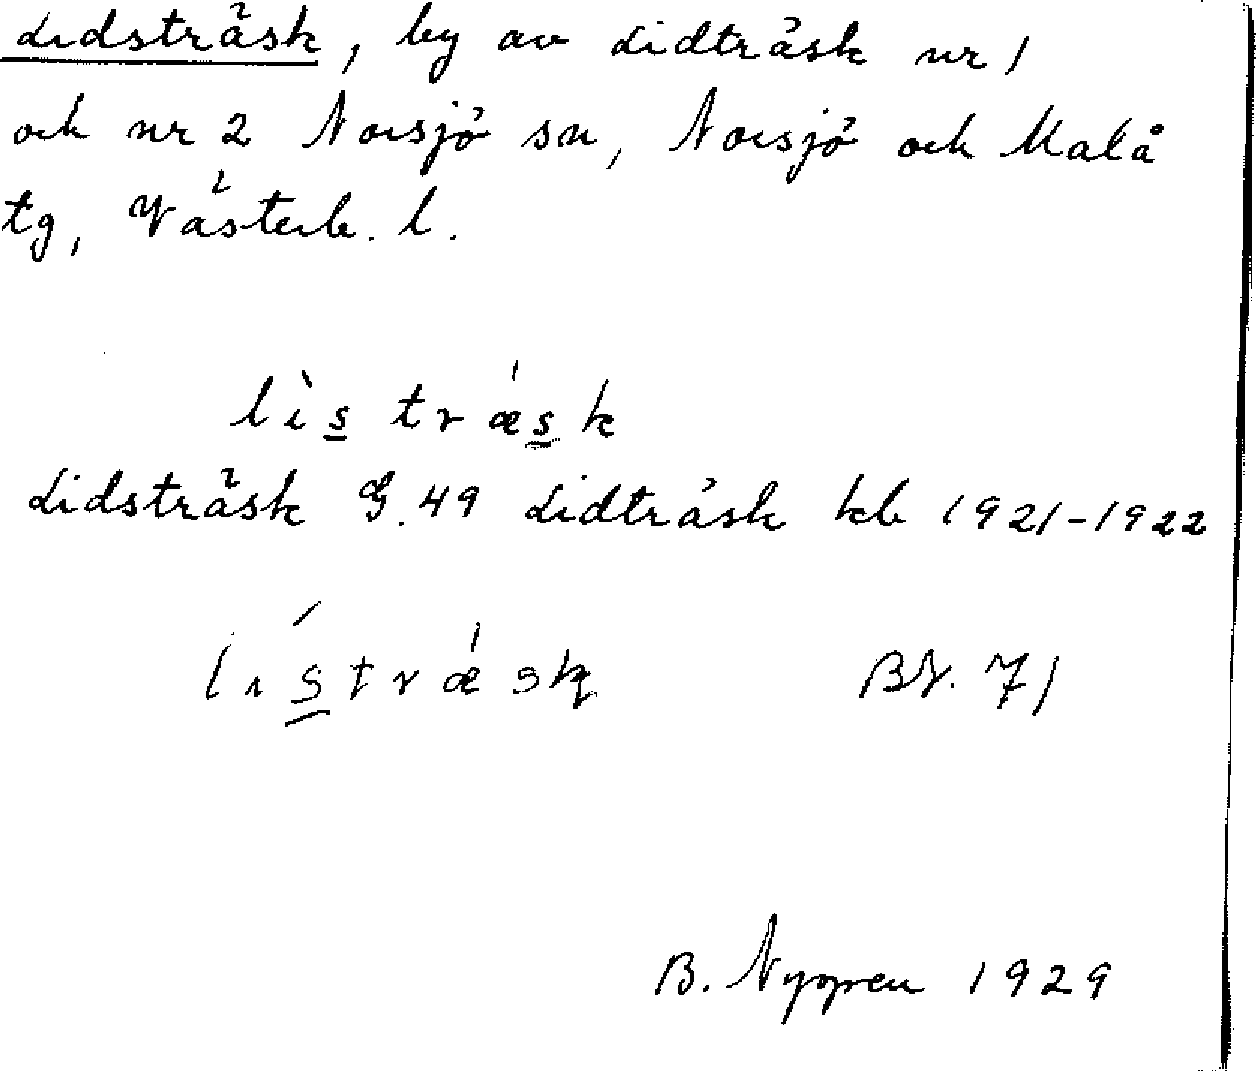 Lidsträsk, by av Lidträsk nr 1
och nr 2 Norsjö sn, Norsjö och Malå
tg, Västerb. l.
lìs trǽsk
Lidsträsk G. 49 Lidträsk kb 1921-1922
lístrǽsk BN. 71
B. Nygren 1929